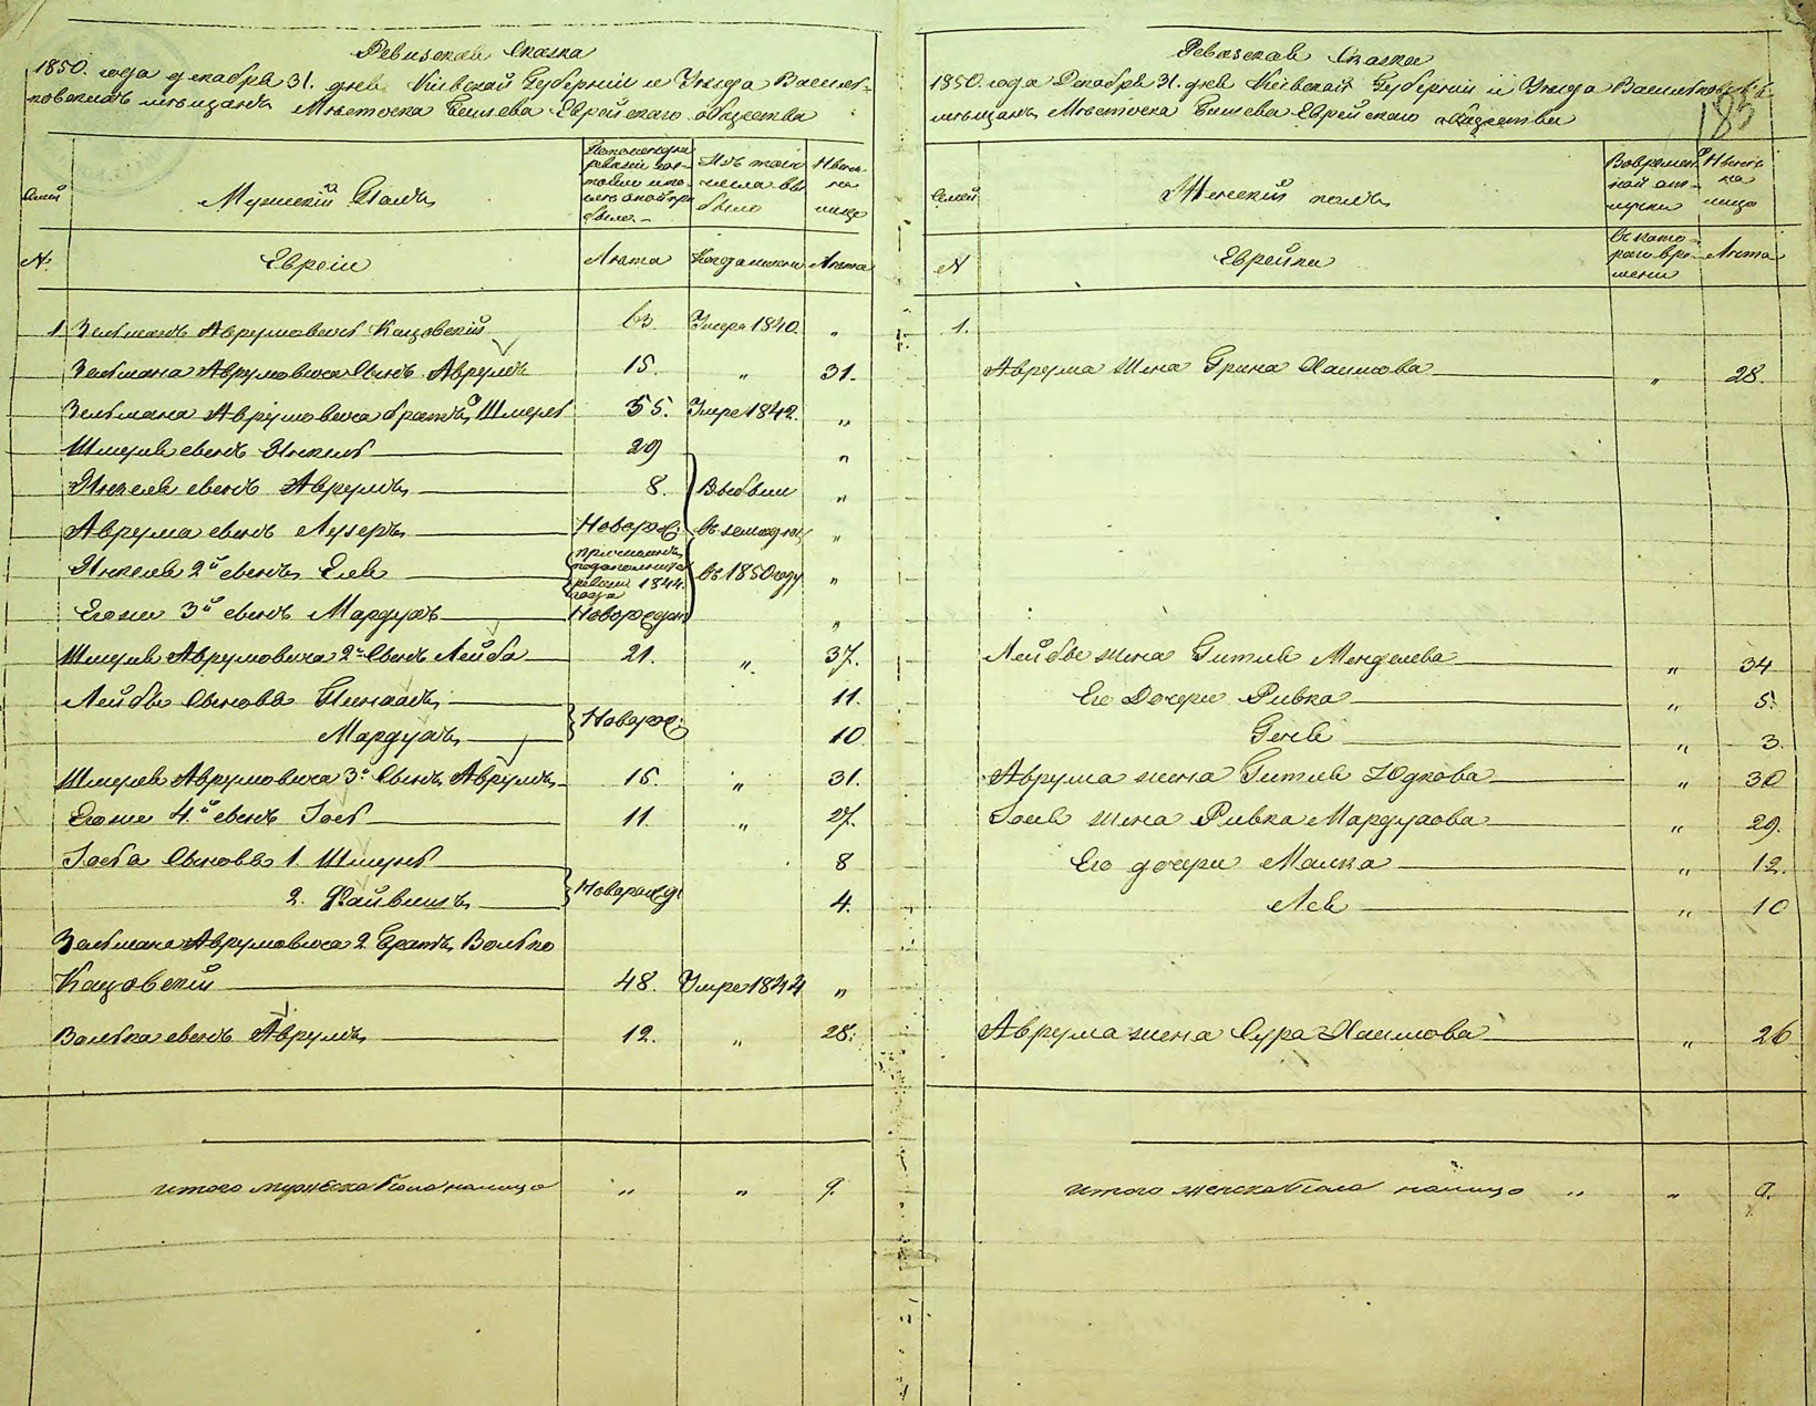 Ревизская Сказка
1850. года декабря 31. дня Кіевской Губерніи и Уѣзда Василь-
ковскихъ мѣщанъ Мѣстечка Бышева Еврейскаго общества
Семьи
Мужескій Полъ
По последней ревизіи состояло и после оной прибыло
Изъ того числа выбыло
Нынѣ на лицо
№
Евреи
Лѣта
Когда именно
Лѣта
1 Зельманъ Аврумовичъ Кацовскій 63 Умеръ 1840. "
Зельмана Аврумовича Сынъ Аврумъ 15. " 31.
Зельмана Аврумовича братъ Шмуль 55. Умре 1842. "
Шмуля сынъ Янкель 29 "
Янкеля сынъ Аврумъ 8. Выбыли "
Аврума сынъ ЛузеръНоворож: въ "
Янкеля 2й сынъ Еля 1844. года въ 1850 году "
Егоже 3й сынъ Мардухъ Новорожден "
Шмуля Аврумовича 2й Сынъ Лейба 21. " 37.
Лейбы Сыновья Пинхасъ 11.
Мардухъ Новорож: 10
Шмуля Аврумовича 3й Сынъ Аврумъ 15. " 31.
Егоже 4й сынъ Іось 11. " 27.
Іося Сыновья 1. Шмуль 8
2. Файвишъ Новорожд: 4.
Зельмана Аврумовича 2 Братъ Волько
Кацовскій 48. Умре 1844 "
Волька сынъ Аврумъ 12. " 28.
итого мужеска пола налицо " " 9.
Ревизская Сказка
183
1850. года Декабря 31. дня Кіевской Губерніи и Уѣзда Васильковскихъ
мѣщанъ Мѣстечка Бышева Еврейскаго общества
Семьи
Женскій полъ
Во временной отлучки
Нынѣ на лицо
№
Еврейки
Съ котораго времени
Лѣта
1.
Аврума жена Грина Хаимова " 28.
Лейбы жена Гитля Менделева " 34
Его Дочери Ривка " 5.
Геня " 3.
Аврума жена Гитля Юдкова " 30
Іося жена Ривка Мардухова " 29.
Его дочери Малка " 12.
Лея " 10
Аврума жена Сура Хаимова " 26
итого женска пола налицо " " 9.